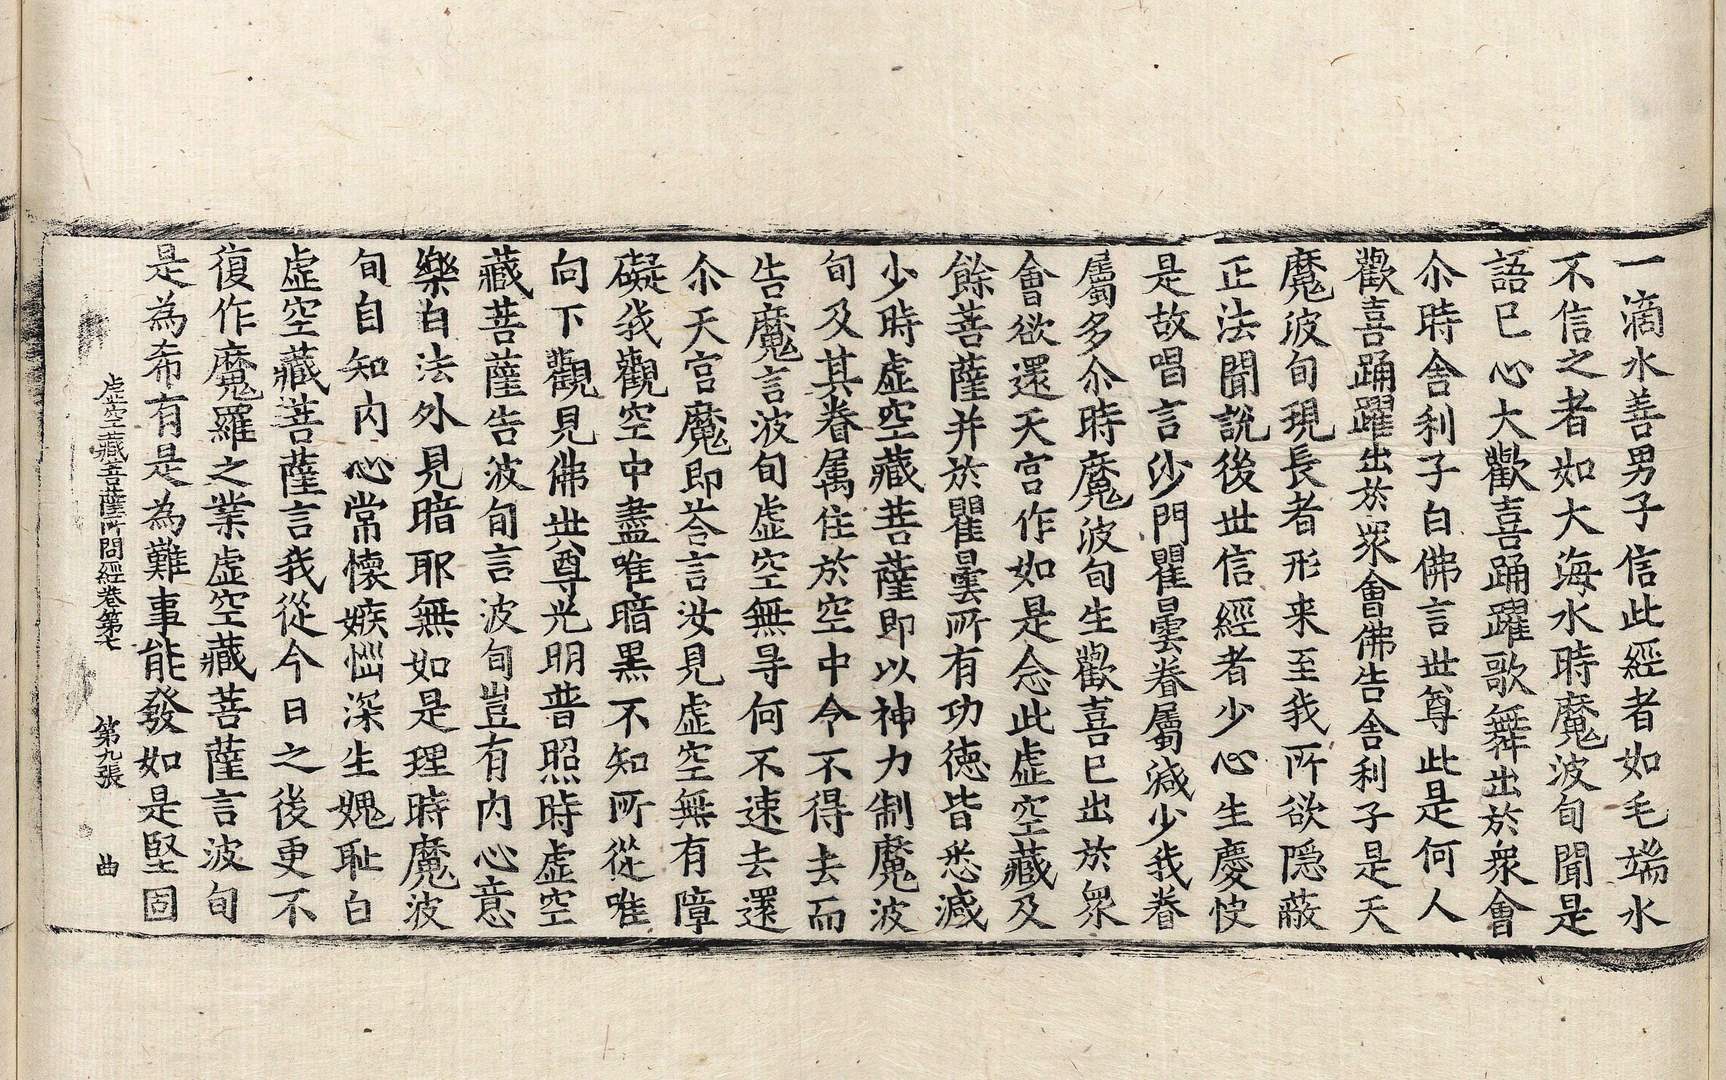 一滴水善男子信此經者如毛端水
不信之者如大海水時魔波旬聞是
語已心大歡喜踊躍歌舞出於衆會
尒時舍利子白佛言世尊此是何人
歡喜踊躍出於衆會佛告舍利子是天
魔波旬現長者形来至我所欲隱蔽
正法聞說後世信經者少心生慶恱
是故唱言沙門瞿曇眷屬減少我眷
屬多尒時魔波旬生歡喜已出於衆
會欲還天宮作如是念此虛空藏及
餘菩薩并於瞿曇所有功德皆悉減
少時虛空藏菩薩即以神力制魔波
旬及其眷属住於空中令不得去而
告魔言波旬虛空無㝵何不速去還
尒天宮魔即荅言汝見虛空無有障
礙我觀空中盡唯暗黑不知所從唯
向下觀見佛世尊光明普照時虛空
藏菩薩告波旬言波旬豈有內心意
樂白法外見暗耶無如是理時魔波
旬自知內心常懷嫉㤪深生媿耻白
虛空藏菩薩言我從今日之後更不
復作魔羅之業虛空藏菩薩言波旬
是為希有是為難事能發如是堅固
虛空藏菩薩所問經卷第七 第九張 曲